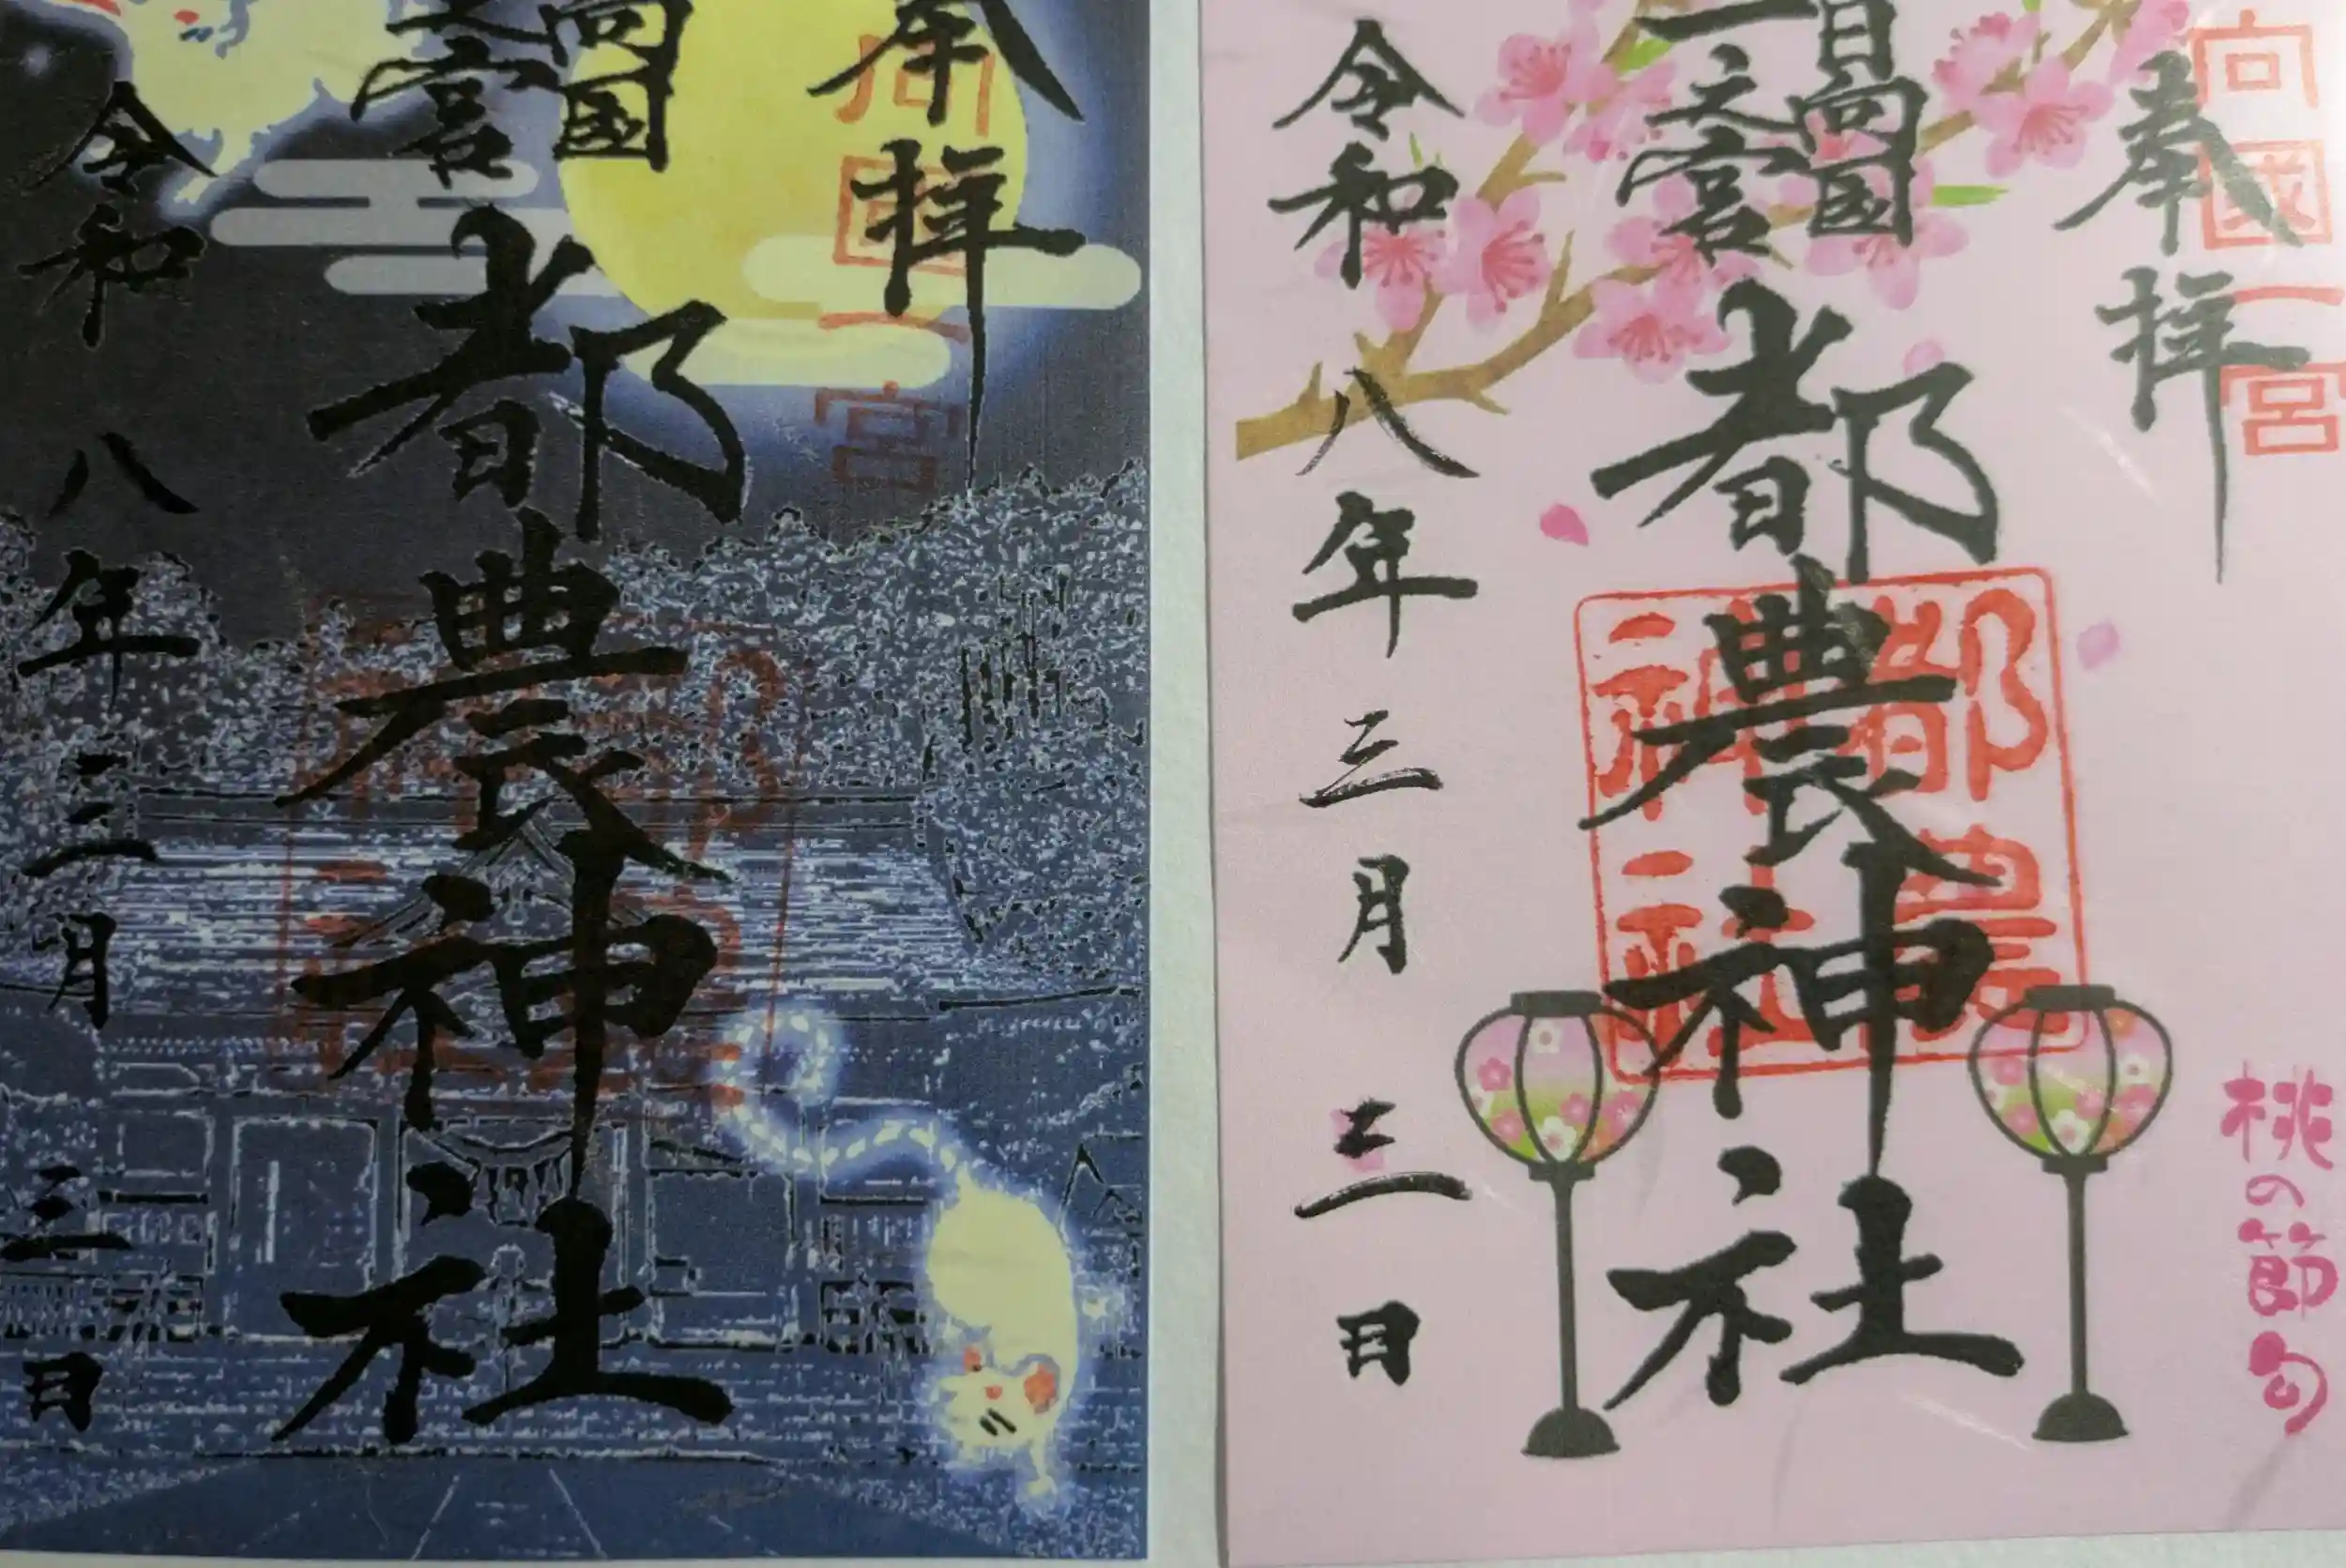 奉拝
向国
一之宮
都農神社
令和八年三月三日
國一宮
奉拝
向國一宮
日向国
一之宮
都農神社
都農神社
令和八年三月三日
桃の節句